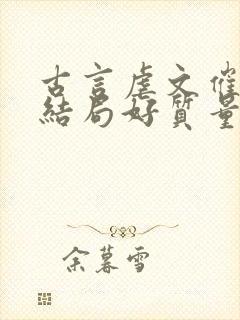 古言虐文催
结局好质量
余暮雪